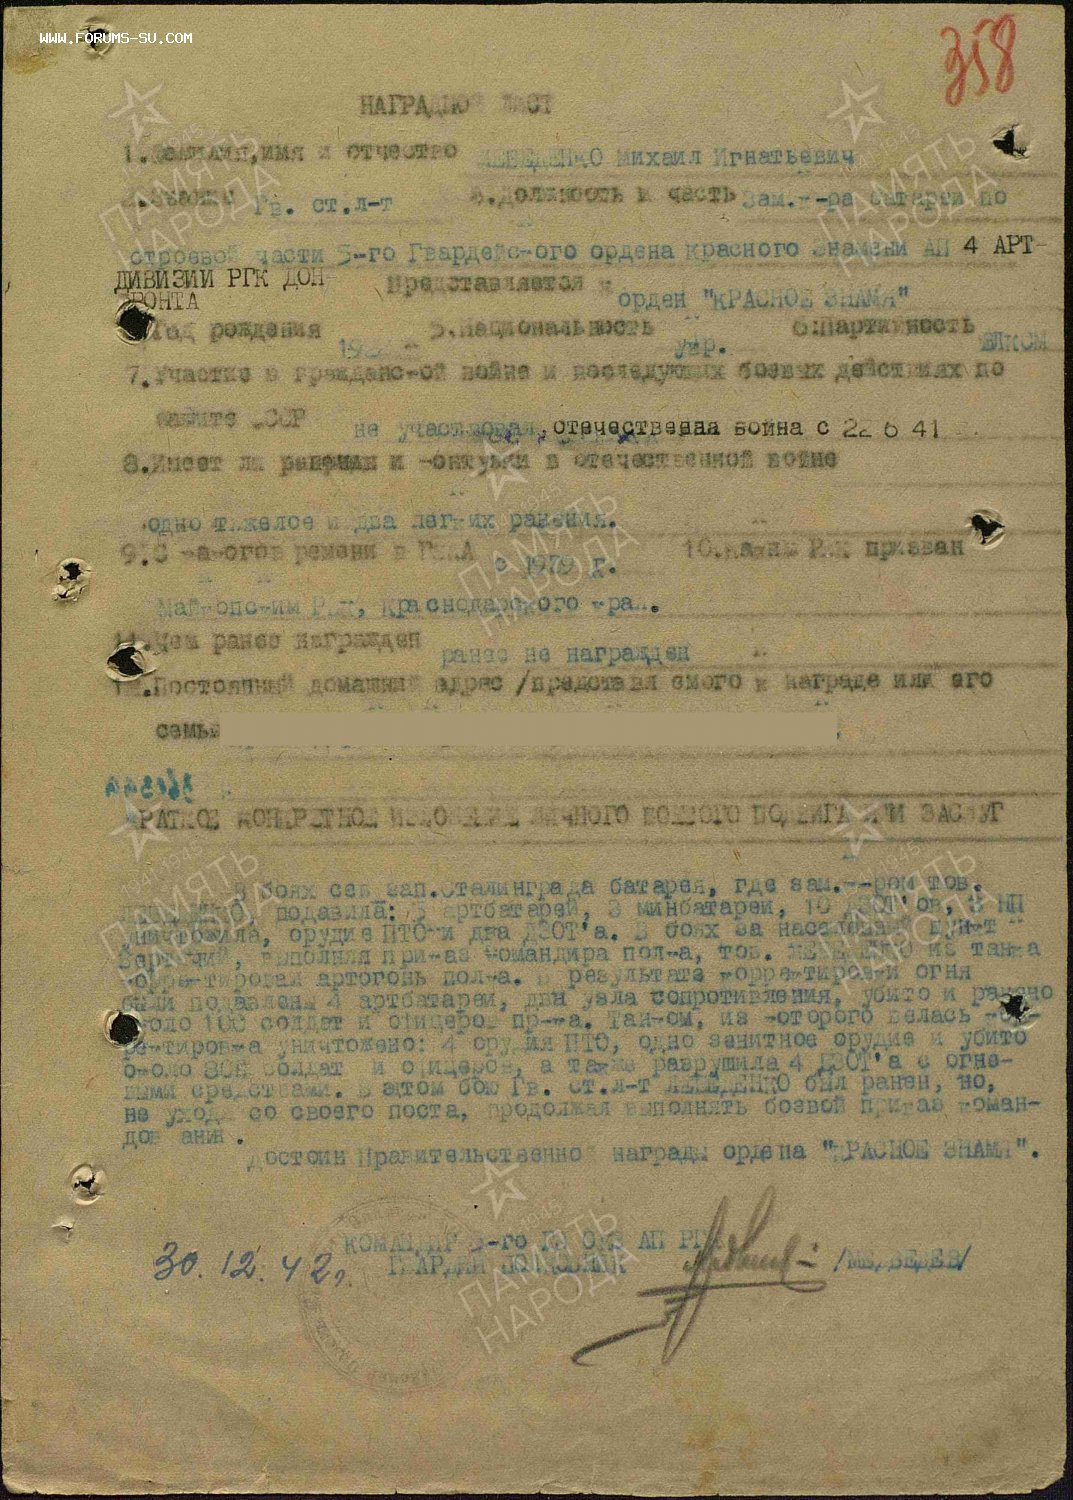 WWW.FORUMS-SU.COM
358
НАГРАДНОЙ ЛИСТ
1. Фамилия, имя и отчество ЛЕБЕДЕНКО Михаил Игнатьевич
2. Звание Гв. ст.л-т 3. Должность и часть Зам. к-ра батареи по
строевой части 5-го Гвардейского ордена красного Знамени АП 4 АРТ-
ДИВИЗИИ РГК ДОН
ФРОНТА Представляется к орден "КРАСНОЕ ЗНАМЯ"
Год рождения 5. Национальность укр. 6. Партийность ВЛКСМ
7. Участие в гражданской войне и последующих боевых действиях по
защите СССР не участвовал, отечественная война с 22 6 41
8. Имеет ли ранения и контузии в отечественной войне
одно тяжелое и два легких ранения.
9. С какого времени в РККА с 1979 г. 10. Каким РВК призван
Майкопским РВК, Краснодарского края.
11. Чем ранее награжден ранее не награжден
12. Постоянный домашний адрес /представляемого к награде или его
семьи
КРАТКОЕ КОНКРЕТНОЕ ИЗЛОЖЕНИЕ ЛИЧНОГО БОЕВОГО ПОДВИГА ИЛИ ЗАСЛУГ
В боях сев зап. Сталинграда батарея, где зам. к-ром тов.
ЛЕБЕДЕНКО, подавила: артбатарей, 3 минбатареи, 10 ДЗОТ'ов, 3 НП
уничтожила, орудие ПТО и два ДЗОТ'а. В боях за населенный пункт
выполняя приказ командира полка, тов. ЛЕБЕДЕНКО из танка
корректировал артогонь полка. В результате корректировки огня
были подавлены 4 артбатареи, два узла сопротивления, убито и ранено
около 100 солдат и офицеров пр-ка. Танком, из которого велась кор-
ректировка уничтожено: 4 орудия ПТО, одно зенитное орудие и убито
около солдат и офицеров, а также разрушила 4 ДЗОТ'а с огне-
выми средствами. В этом бою Гв. ст.л-т ЛЕБЕДЕНКО был ранен, но,
не уходя со своего поста, продолжал выполнять боевой приказ коман-
дования.
Достоин Правительственной награды ордена "КРАСНОЕ ЗНАМЯ".
КОМАНДИР 5-го Гв АП РГК
ГВАРДИИ ПОЛКОВНИК /МЕДВЕДЕВ/
30.12.42г.
ПАМЯТЬ НАРОДА
1941-1945